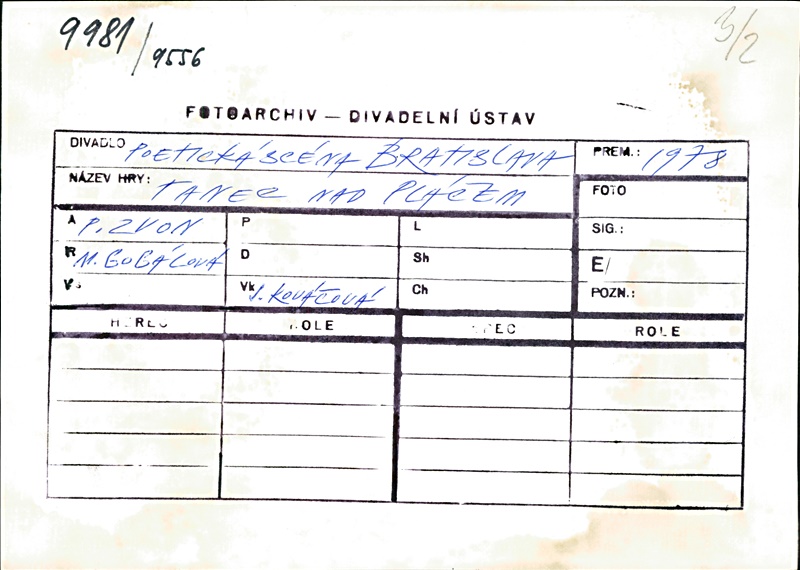 9981/9556
3/2
FOTOARCHIV — DIVADELNÍ ÚSTAV
DIVADLO POETICKÁ SCÉNA BRATISLAVA
PREM.: 1978
NÁZEV HRY: TANEC NAD PLÁČEM
FOTO
A P. ZVON
P
L
SIG.:
R M. GOGÁĽOVÁ
D
Sh
E/
V
Vk J. KOVÁČOVÁ
Ch
POZN.:
HEREC
ROLE
HEREC
ROLE